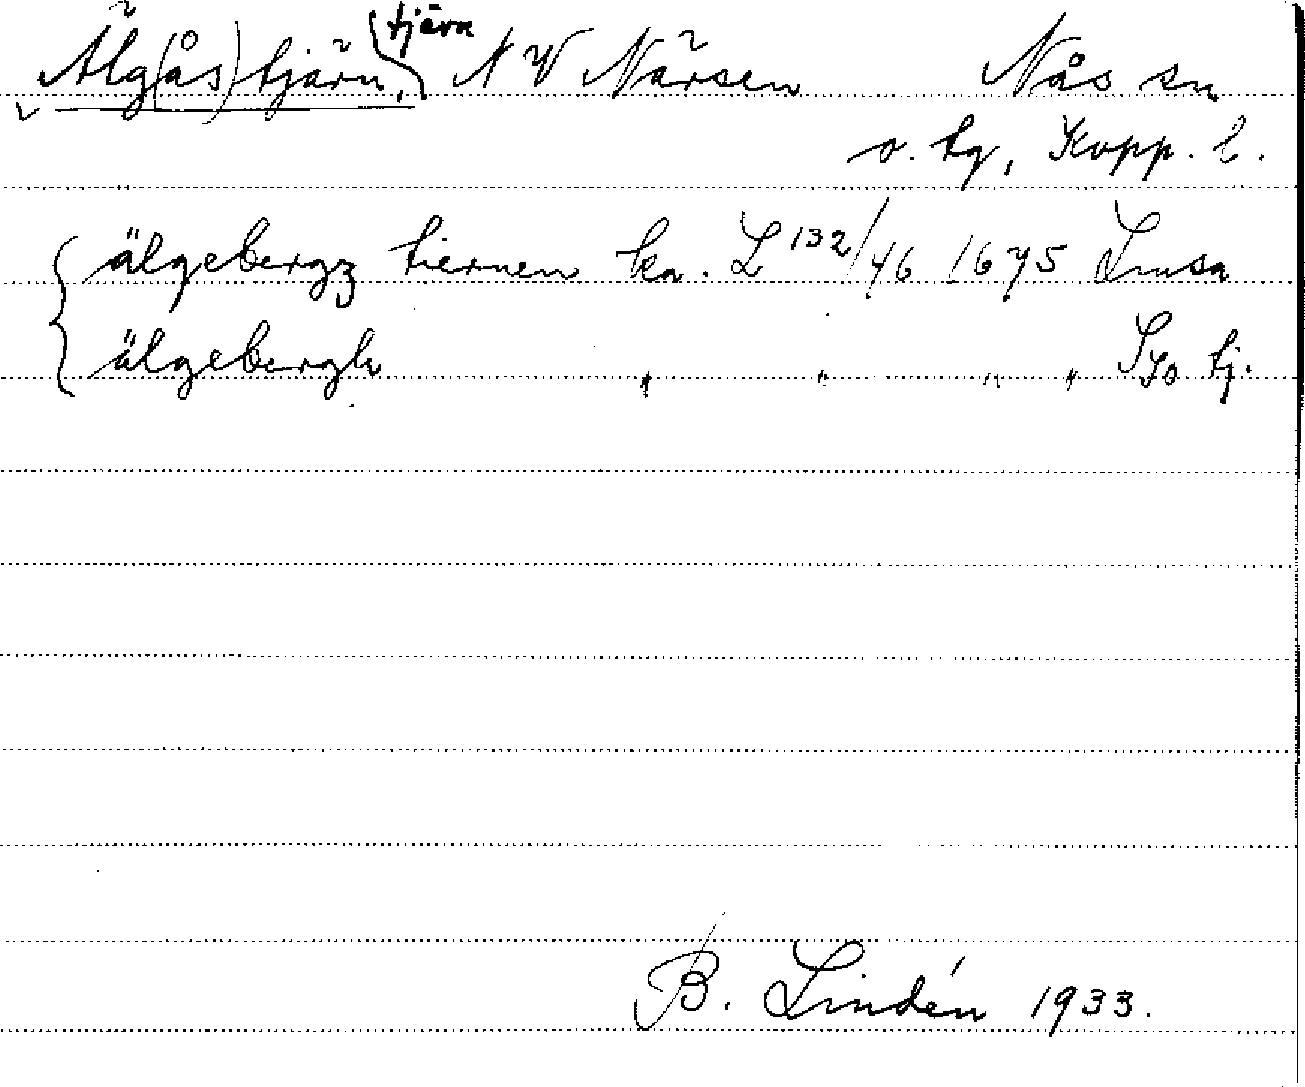 Älg(ås)tjärn, tjärn NV Närsen Nås sn
o. tg, Kopp. l.
älgebergz tiernen ka. L 132/46 1675 Limsa
älgebergh " " " " S70 tj.
B. Lindén 1933.